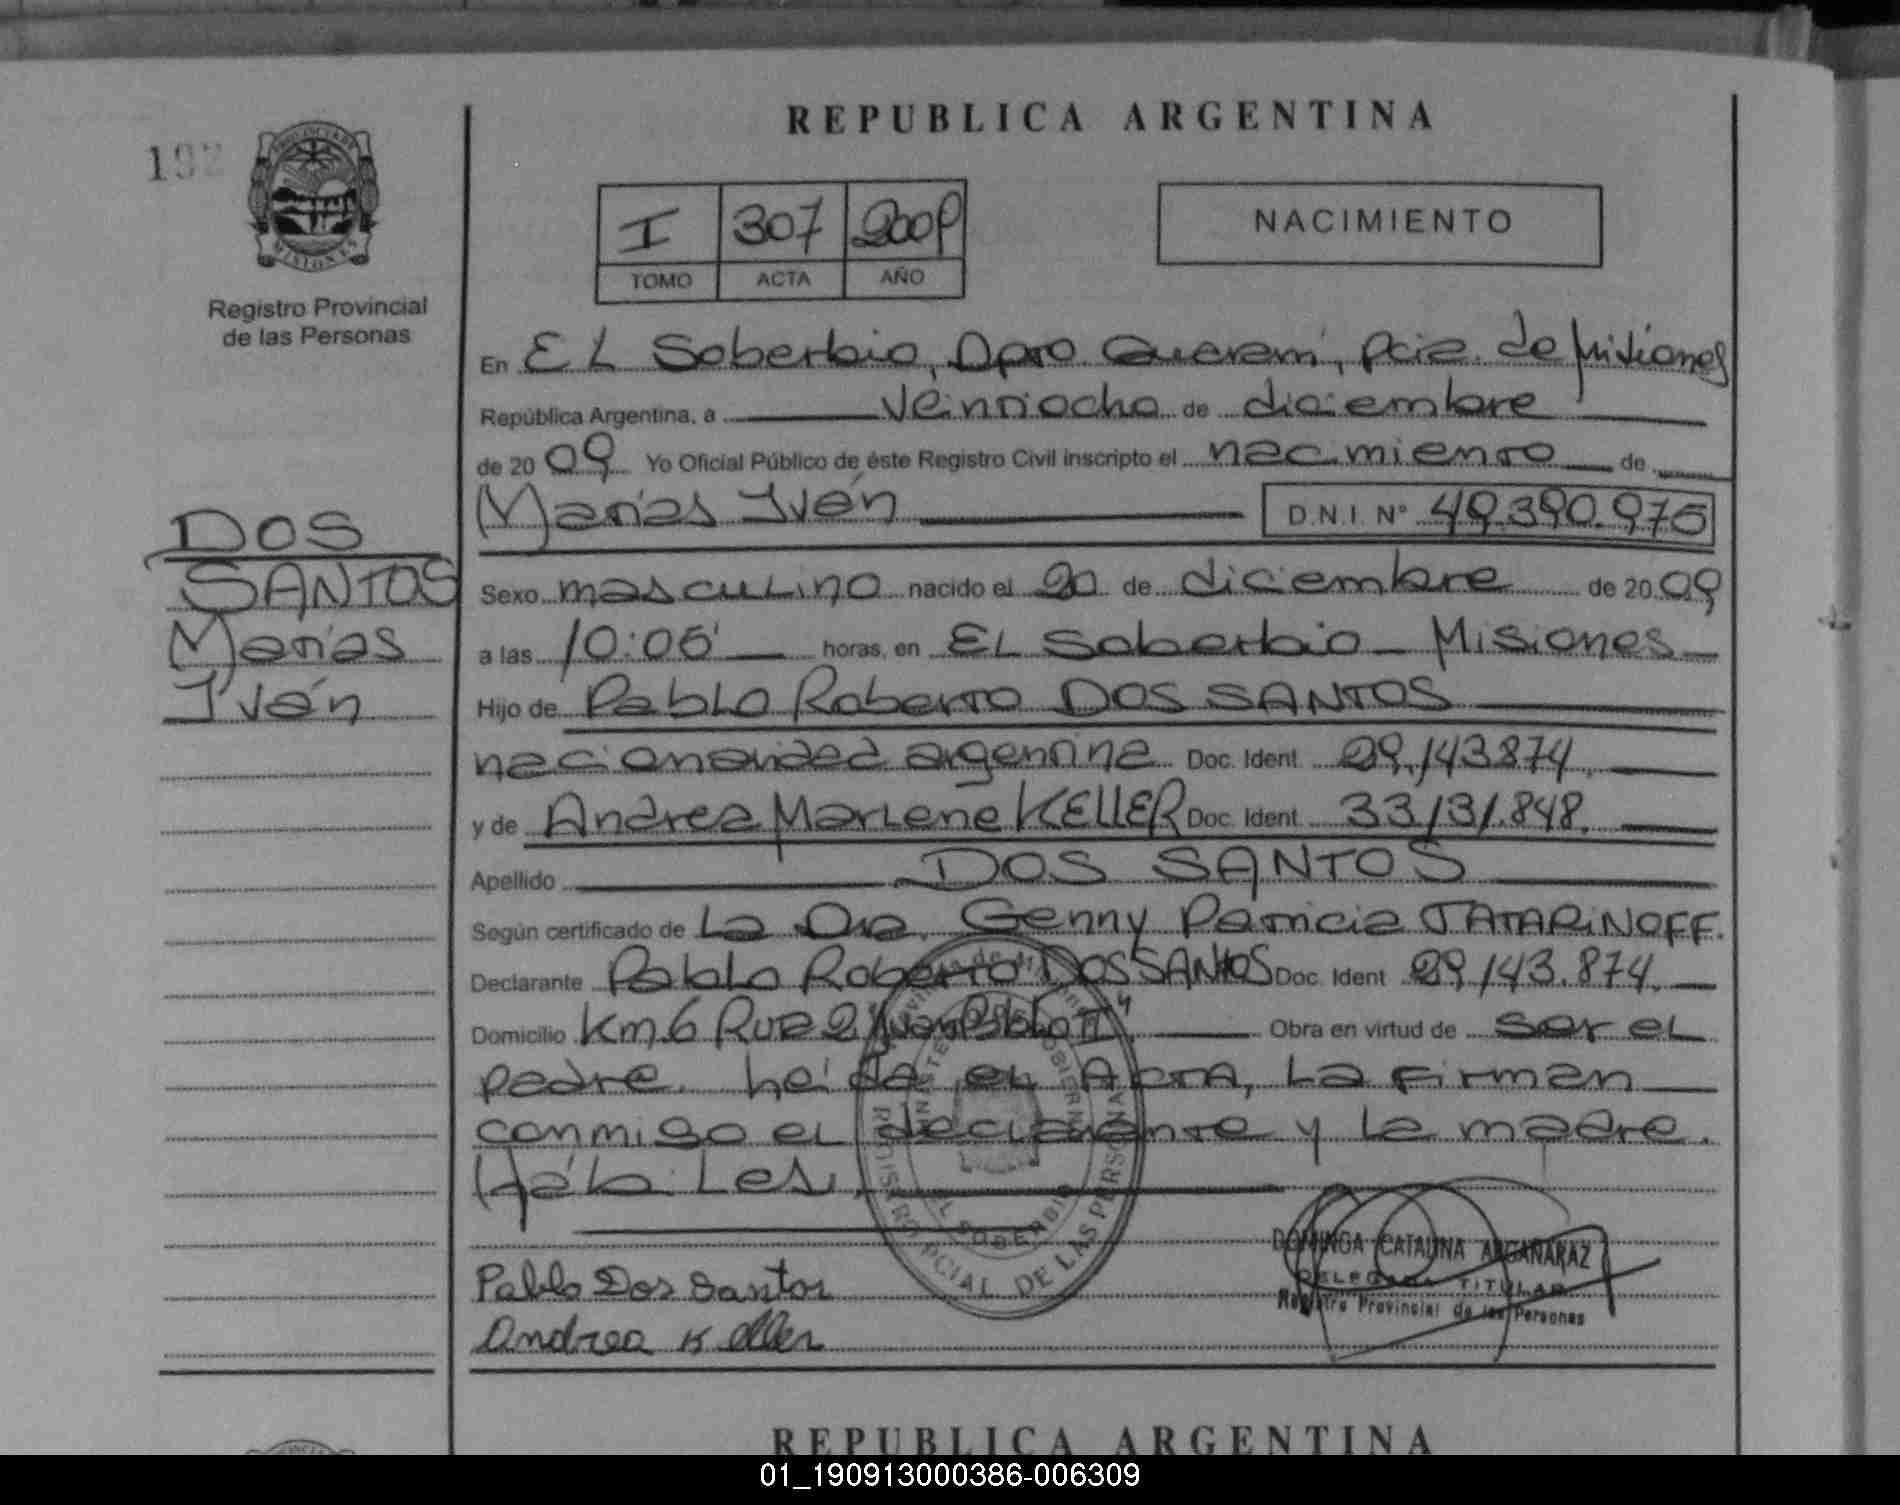 REPUBLICA ARGENTINA
192
PROVINCIA DE
MISIONES
Registro Provincial
de las Personas
I 307 2009
TOMO ACTA AÑO
NACIMIENTO
En EL Soberbio, Dpto Guaraní, Pcia. de Misiones
República Argentina, a veintiocho de diciembre
de 2009 Yo Oficial Público de éste Registro Civil inscripto el nacimiento de
Matías Iván D.N.I. N° 49.390.975
DOS
SANTOS
Matías
Iván
Sexo masculino nacido el 20 de diciembre de 2009
a las 10:05 horas, en EL Soberbio - Misiones
Hijo de Pablo Roberto DOS SANTOS
nacionalidad argentina Doc. Ident 29.143.874.
y de Andrea Marlene KELLER Doc. Ident 33.131.848.
Apellido DOS SANTOS
Según certificado de La Dra. Genny Patricia TATARINOFF.
Declarante Pablo Roberto DOS SANTOS Doc. Ident 29.143.874.
Domicilio Km.6 Ruta 2 "Juan Pablo II" Obra en virtud de ser el
padre. Leída el ACTA, La firman
conmigo el declarante y la madre.
Hábiles.
REGISTRO PCIAL DE LAS PERSONAS
EL SOBERBIO
Pablo Dos Santos
Andrea Keller
DOMINGA CATALINA ARGAÑARAZ
DELEGADA TITULAR
Registro Provincial de las Personas
REPUBLICA ARGENTINA
01_190913000386-006309